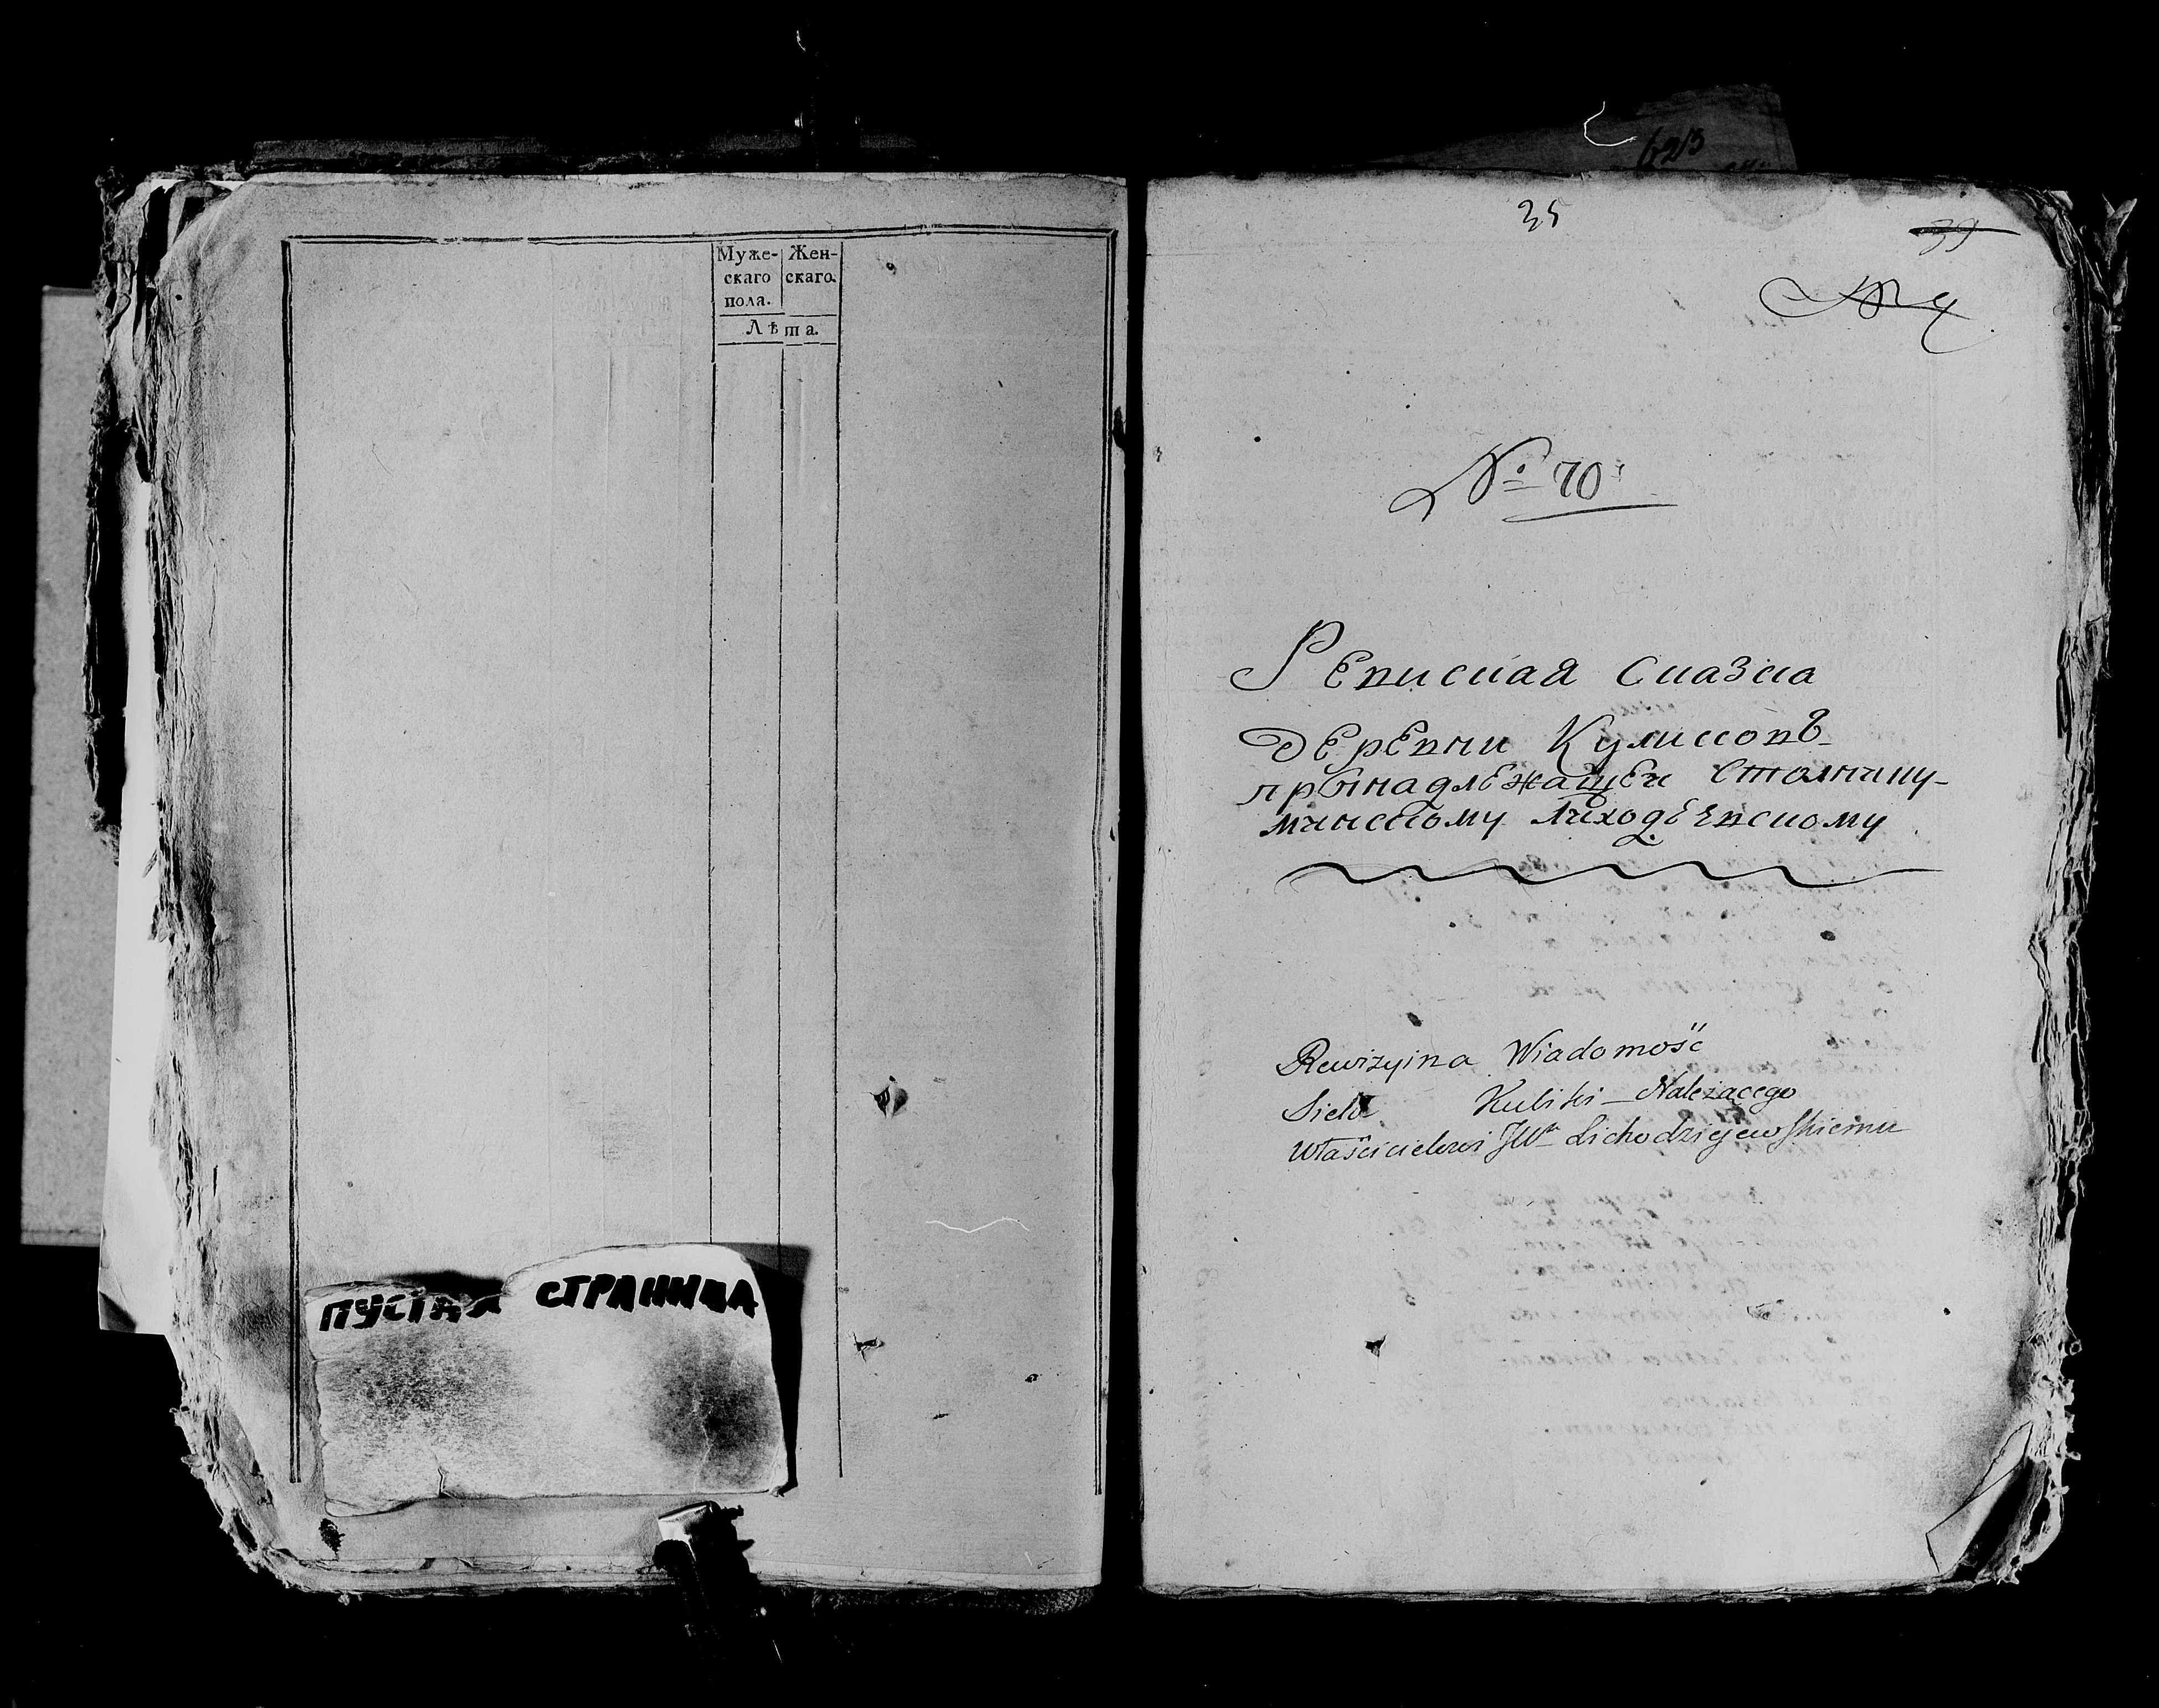 Муже-
скаго
пола.
Жен-
скаго.
Лѣта.
ПУСТАЯ СТРАНИЦА
35
39
№ 70
Ревиская сказка
деревни Куликовъ
принадлежащей Столнику
минскому Лиходѣевскому
Rewizyina Wiadomość
Sieła Kuliki Należącego
Właścicielowi JWu Lichodziejewskiemu